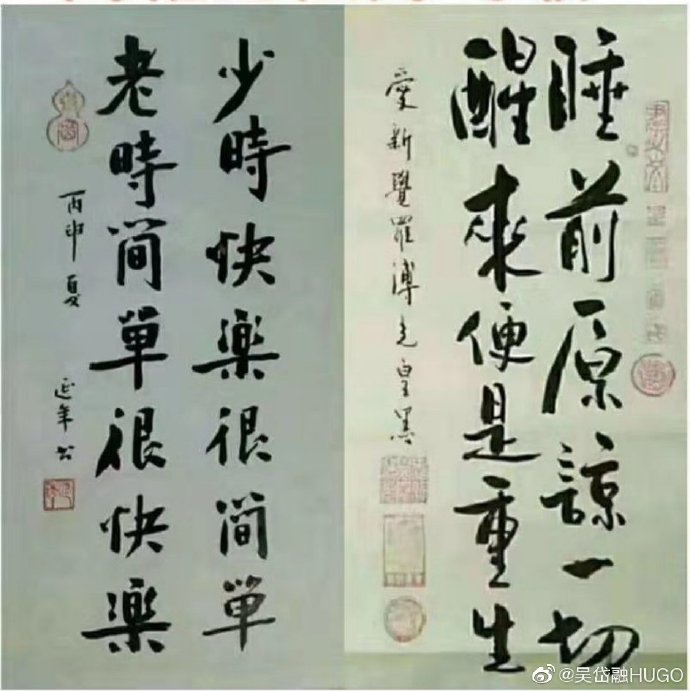 睡前原諒一切
醒來便是重生
愛新覺羅溥
少時快樂很简單
老時简單很快樂
丙申夏 延年
@吴岱融HUGO